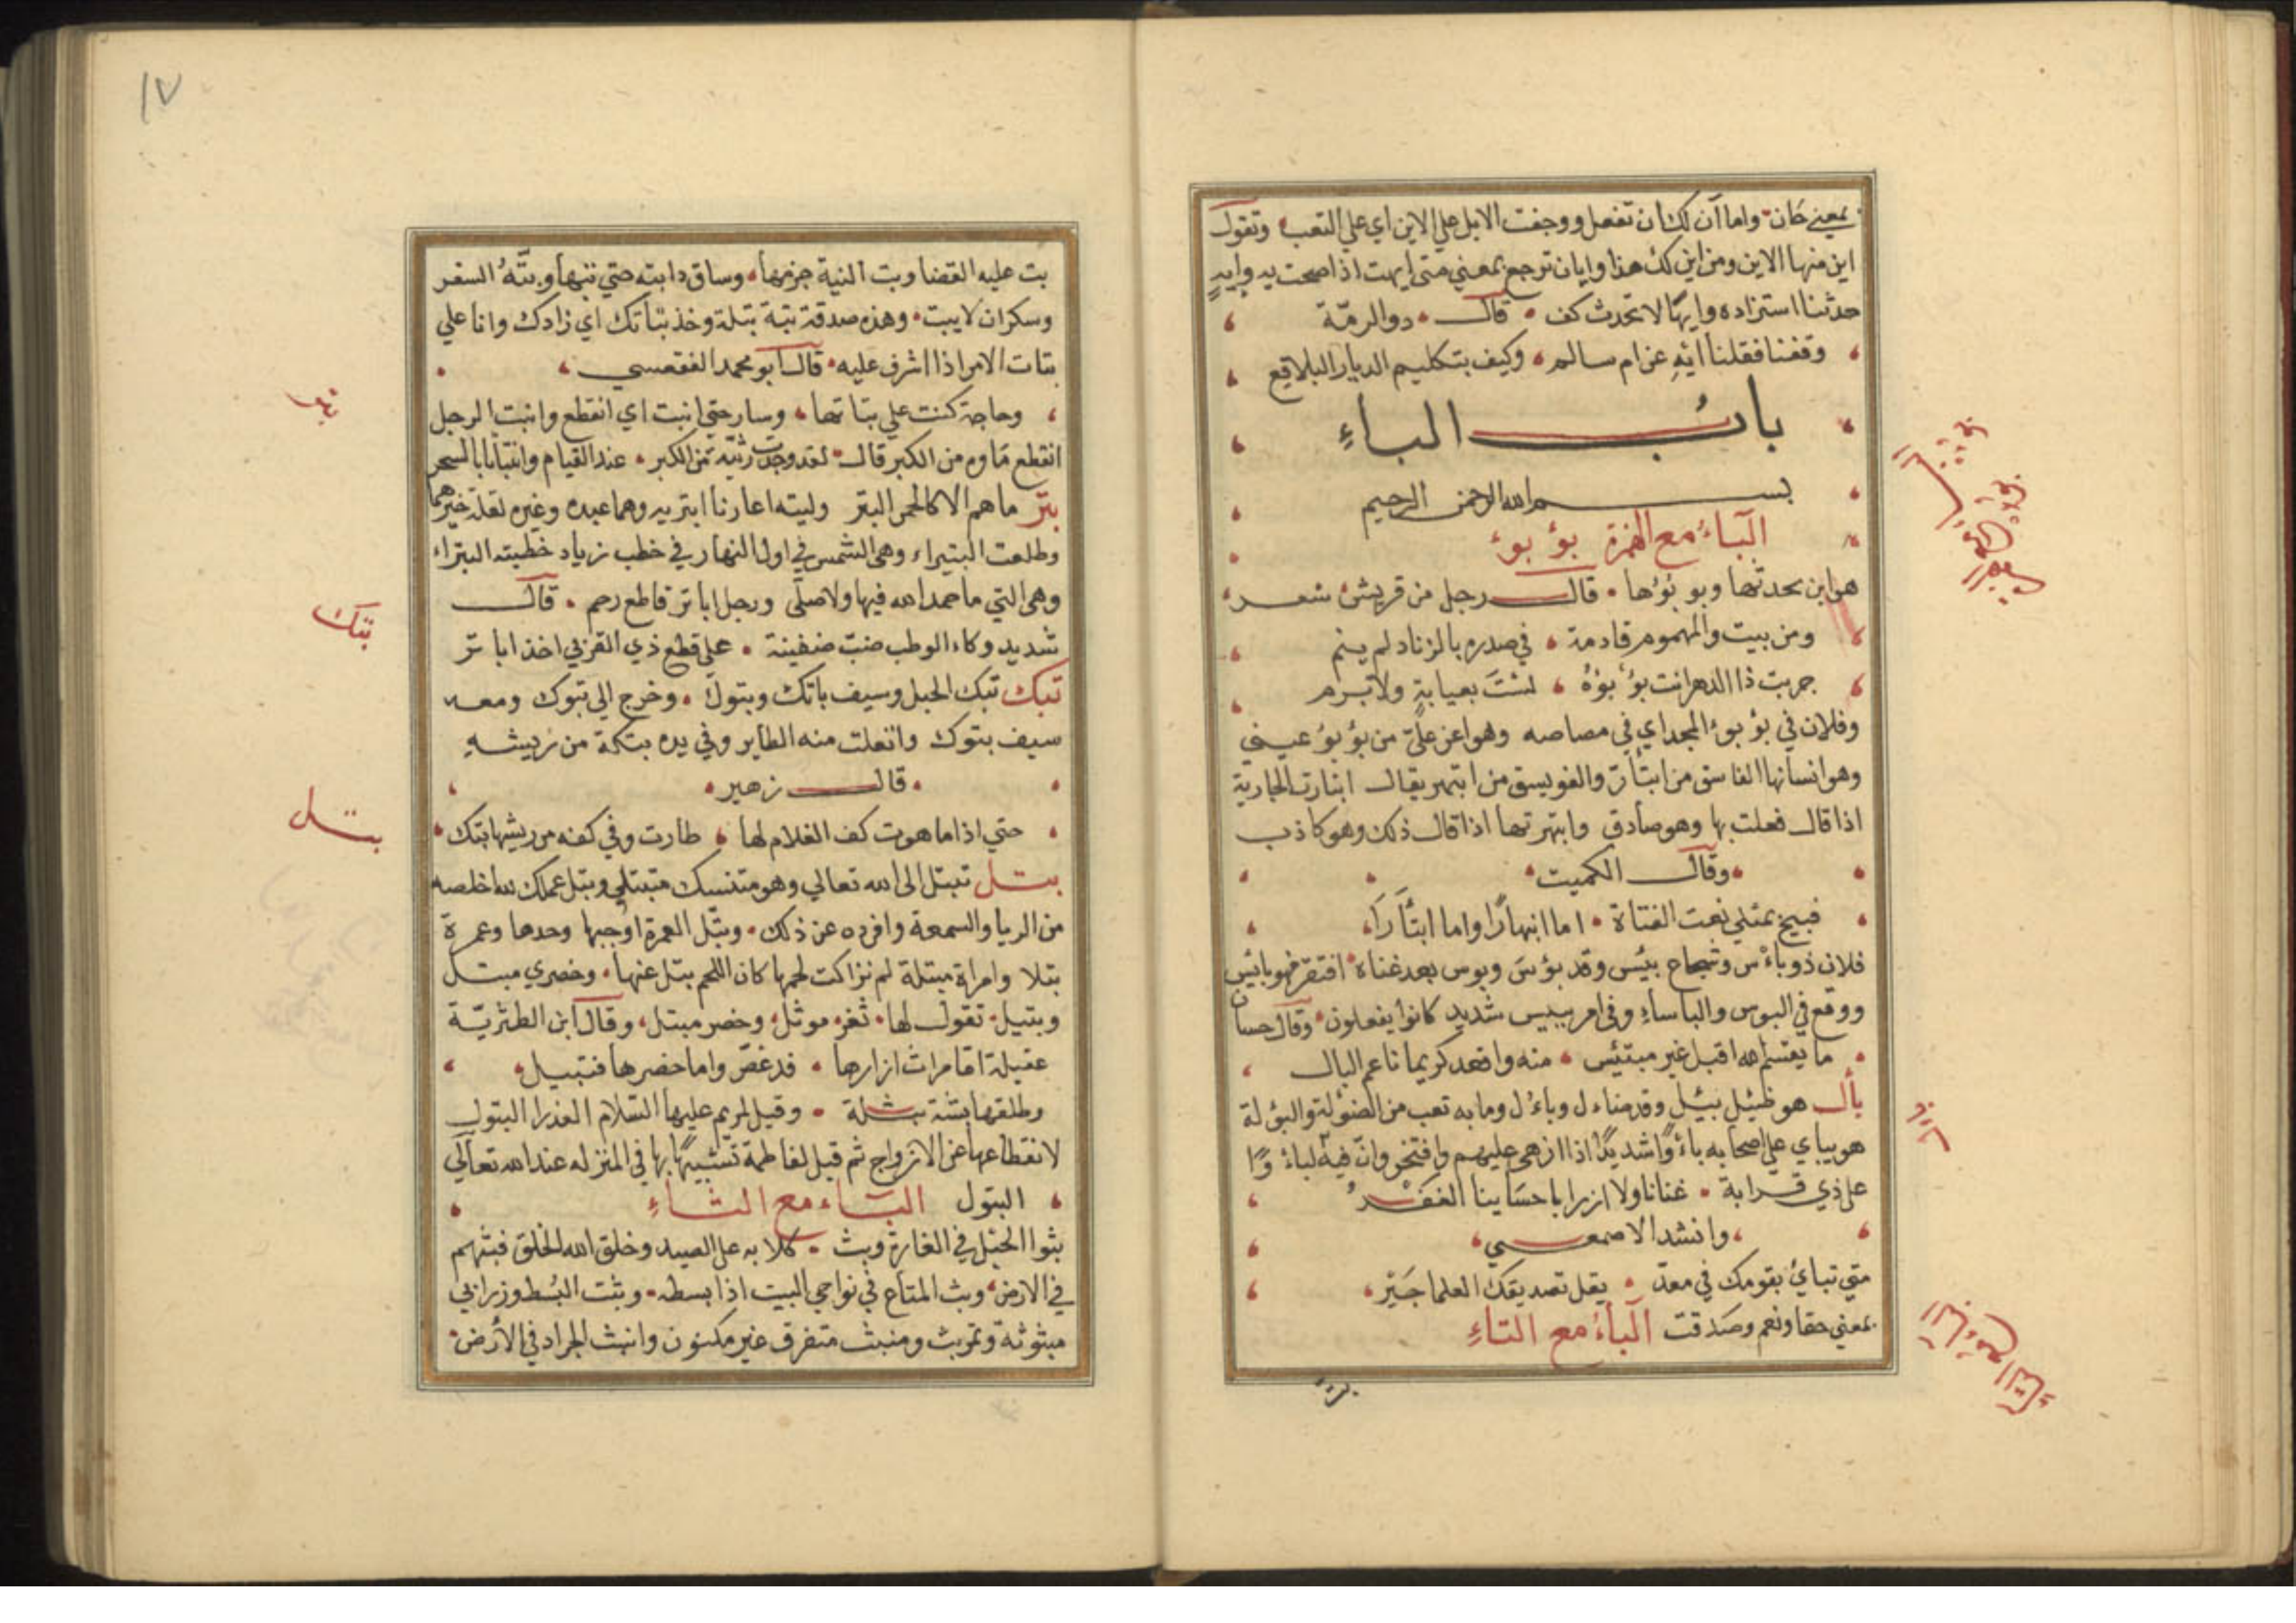 بمعنى حان واما آن لك ان تفعل ووجفت الابل علي الاين اي علي التعب وتقول
اين منها الاين ومن اين لك هذا وايان ترجع بمعني متي ايهت اذا صحت به وايهٍ
حدثنا استزاده وايهًا لا تحدث كف قال ذو الرمّة
وقفنا فقلنا ايهِ عن ام سالم وكيف بتكليم الديار البلاقع
باب الباءِ
بسم الله الرحمن الرحيم
الباءُ مع الهمزة بؤبوء
هو ابن بجدتها وبوبؤها قال رجل من قريش شعر
ومن يبيت والهموم قادحة في صدره بالزناد لم ينم
جربت ذا الدهر انت بؤبؤهُ لستَ بعيابةٍ ولا برم
وفلان في بؤبوء المجد اي في مصاصه وهو اعز عليّ من بؤبؤ عيني
وهو انسانها الفاسق من ابتأر والفويسق من ابتهر يقال ابتارت الجارية
اذا قال فعلت بها وهو صادق وابتهرتها اذا قال ذلك وهو كاذب
وقال الكميت
قبيح بمثلي نعت الفتاة اما ابتهارًا واما ابتأرَا
فلان ذو بأس وشجاع بئيس وقد بؤس وبوس بعد غناه افتقر فهو بائس
ووقع في البوس والباساءِ وفي امر بييس شديد كانوا يفعلون وقال حسان
ما يقسم الله اقبل غير مبتئس منه واقعد كريما ناعم البال
بأل هو ضئيل بئيل وقد ضاءل وباءل وما به تعب من الضؤلة والبؤلة
هو يباي علي اصحابه باءوًا شديدًا اذا ازهى عليهم وافتخر وانّ فيه لباءوًا
علي ذي قرابة غنانا ولا ازرا باحسابنا الفقرُ
وانشد الاصمعي
متي تباي بقومك في معدّ يقل تصديقك العلما جَيْر
بمعني حقا ونعم وصدقت الباءُ مع التاءِ
بتت
١٧
بت عليه القضا وبت النية جزمها وساق دابته حتي بتها وبتّهُ السفر
وسكران لا يبت وهذه صدقة بتة بتلة وخذ بتاتك اي زادك وانا علي
بتات الامر اذا اشرف عليه قال ابو محمد الفقعسي
وحاجة كنت علي بتاتها وسار حتي انبت اي انقطع وانبت الرجل
انقطع ماوه من الكبر قال لقد وجدت رثية من الكبر عند القيام وانبتاتا بالسحر
بتر ما هم الا كالحمر البتر وليته اعارنا ابتريه وهما عبده وغيره لقلة خيرهما
وطلعت البتيراء وهي الشمس في اول النهار في خطب زياد خطبته البتراء
وهي التي ما حمد الله فيها ولا صلّى ورجل اباتر قاطع رحم قال
شديد وكاء الوطب ضبّ ضغينة علي قطع ذي القربي احذ اباتر
بتك بتك الحبل وسيف باتك وبتوك وخرج الي تبوك ومعه
سيف بتوك وانفلت منه الطاير وفي يده بتكة من ريشهِ
قال زهير
حتي اذا ما هوت كف الغلام لها طارت وفي كفه من ريشها بتك
بتل تبتل الي الله تعالي وهو متنسك متبتل وبتل عملك لله اخلصه
من الريا والسمعة وافرده عن ذلك وبتّل العمرة اوجبها وحدها وعمرة
بتلا وامراة مبتلة لم تراكب لحمها كان اللحم بتل عنها وخصري مبتل
وبتيل تقول لها ثغر موثل وخصر مبتل وقال ابن الطثريّة
عقيلة اما مراث ازارها فدعصّ واما خصرها فبتيل
وطلقها بتة بتلة وقيل لمريم عليها السلام العذرا البتول
لانقطاعها عن الازواج ثم قيل لفاطمة تشبيهًا بها في المنزله عند الله تعالي
البتول الباء مع الثاءِ
بثوا الخيل في الغارة وبث كلابه علي الصيد وخلق الله الخلق فبثهم
في الارض وبث المتاع في نواحي البيت اذا بسطه وبثت البُسط وزرابي
مبثوثة وتمر بث ومنبث متفرق غير مكنون وانبث الجراد في الأرض
بتك
بتل